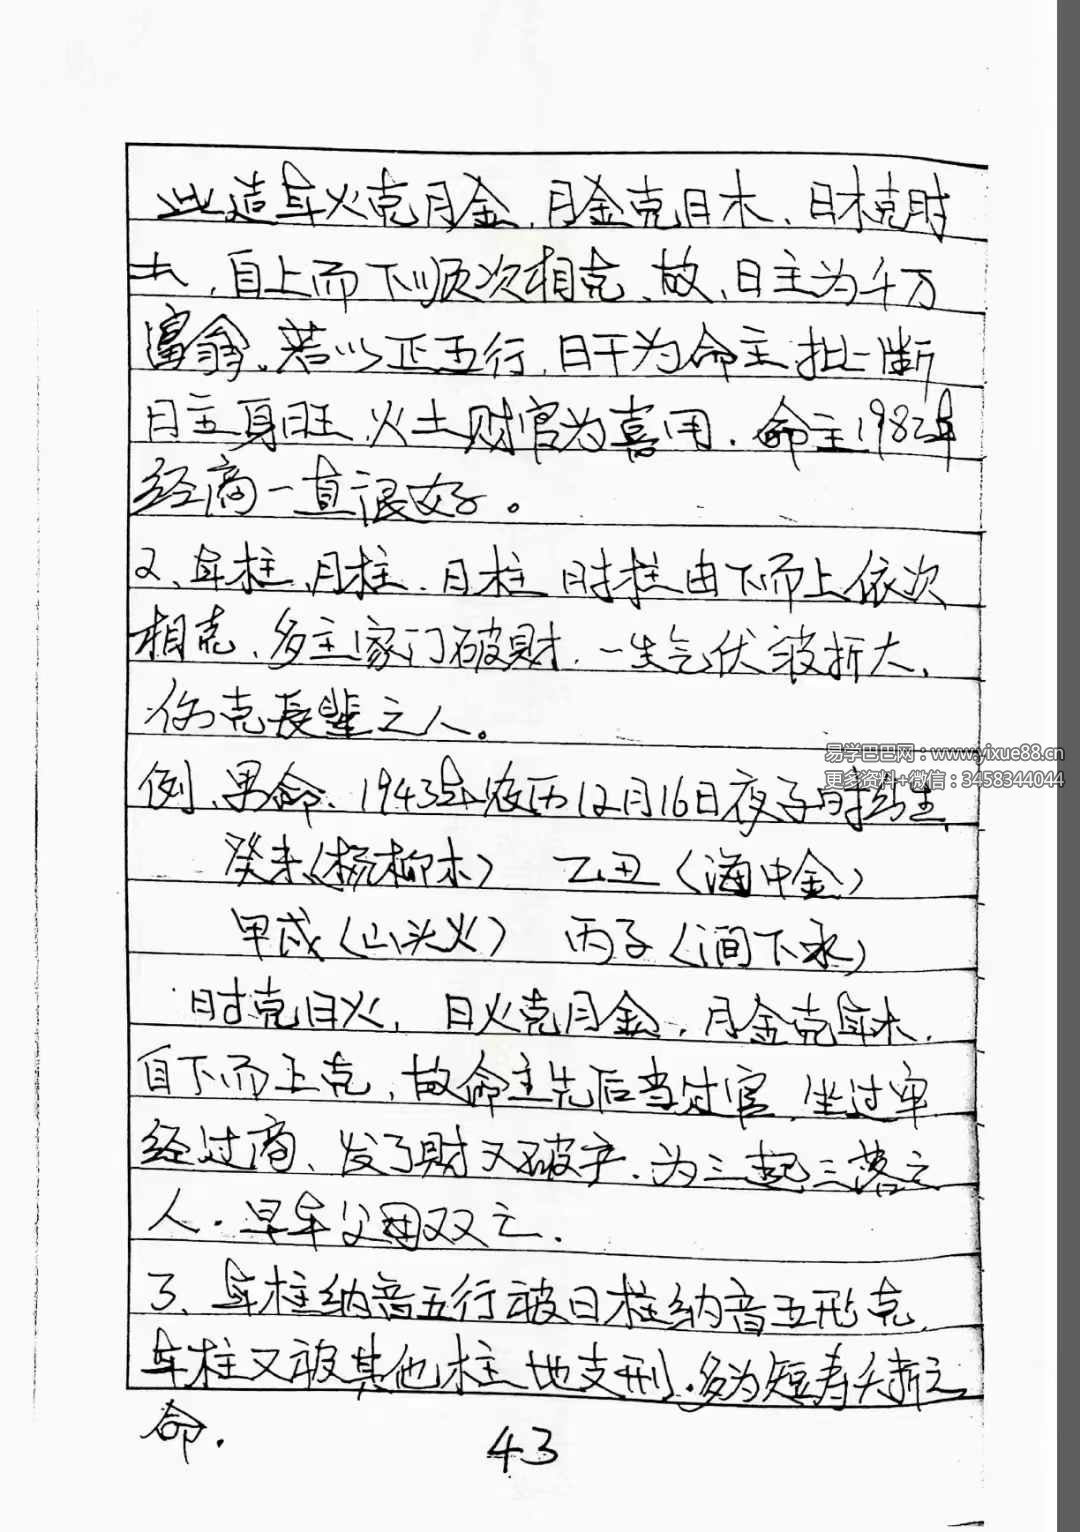 此造年火克月金,月金克日木、日木克时
土,自上而下顺次相克、故、日主为千万
富翁。若以正五行,日干为命主批断
日主身旺,火土财官为喜用.命主1982年
经商一直很好。
2、年柱、月柱.日柱 时柱由下而上依次
相克、多主家门破财.一生气伏波折大、
伤克長辈之人。
易学巴巴网:www.yixue88.cn
更多资料+微信:3458344044
例、男命、1943年农历12月16日夜子时出生,
癸未(杨柳木) 乙丑(海中金)
甲戌(山头火) 丙子(涧下水)
时克日火, 日火克月金,月金克年木.
自下而上克,故命主先后当过官,坐过牢
经过商、发了财又破产.为三起三落之
人.早年父母双亡.
3、年柱纳音五行被日柱纳音五形克,
年柱又被其他柱地支刑.多为短寿夭折之
命.
43